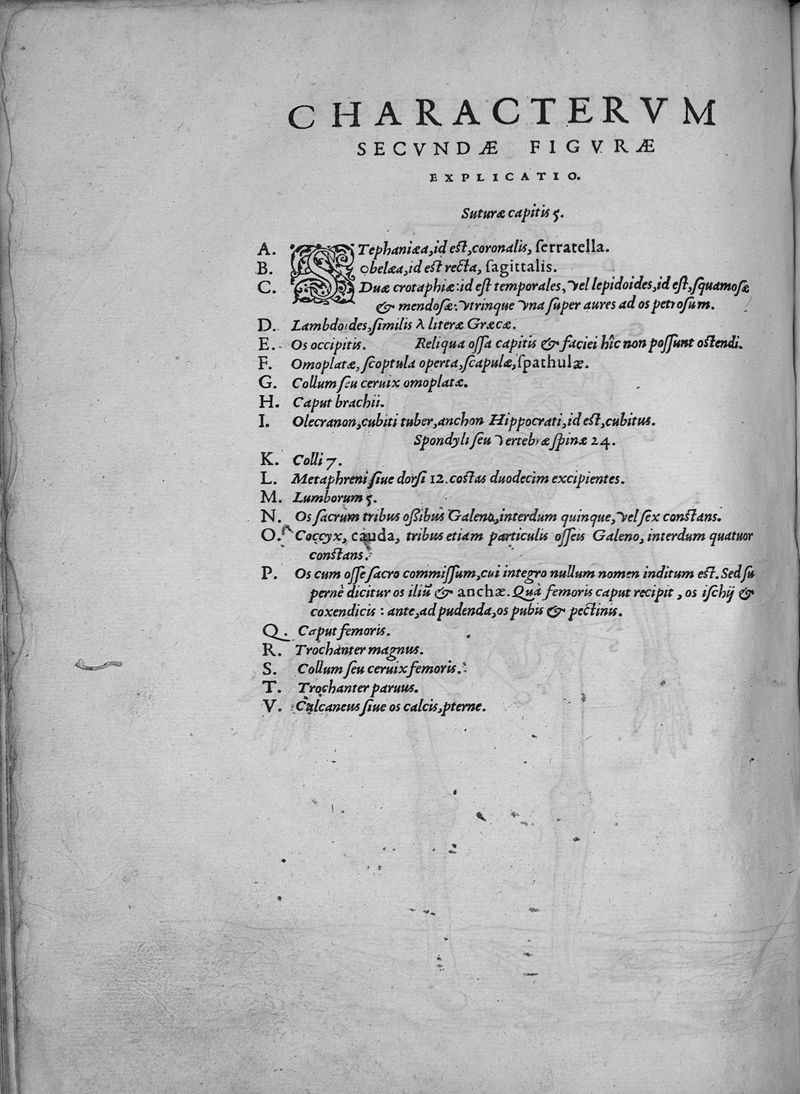 CHARACTERVM
SECVNDÆ FIGVRÆ
EXPLICATIO.
Suturæ capitis 5.
A. STephaniæa, id eſt, coronalis, ſerratella.
B. obelæa, id eſt recta, ſagittalis.
C. Duæ crotaphiæ: id eſt temporales, vel lepidoides, id eſt, ſquamoſæ
& mendoſæ: vtrinque vna ſuper aures ad os petroſum.
D. Lambdoides, ſimilis λ literæ Græcæ.
E. Os occipitis. Reliqua oſſa capitis & faciei hîc non poſſunt oſtendi.
F. Omoplatæ, ſcoptula operta, ſcapulæ, ſpathulæ.
G. Collum ſeu ceruix omoplatæ.
H. Caput brachii.
I. Olecranon, cubiti tuber, anchon Hippocrati, id eſt, cubitus.
Spondyli ſeu vertebræ ſpinæ 24.
K. Colli 7.
L. Metaphreni ſiue dorſi 12. coſtas duodecim excipientes.
M. Lumborum 5.
N. Os ſacrum tribus oſſibus Galeno, interdum quinque, vel ſex conſtans.
O. Coccyx, cauda, tribus etiam particulis oſſeis Galeno, interdum quatuor
conſtans.
P. Os cum oſſe ſacro commiſſum, cui integro nullum nomen inditum eſt. Sed ſu
pernè dicitur os iliũ & anchæ. Quà femoris caput recipit, os iſchij &
coxendicis: ante, ad pudenda, os pubis & pectinis.
Q. Caput femoris.
R. Trochanter magnus.
S. Collum ſeu ceruix femoris.
T. Trochanter paruus.
V. Calcaneus ſiue os calcis, pterne.